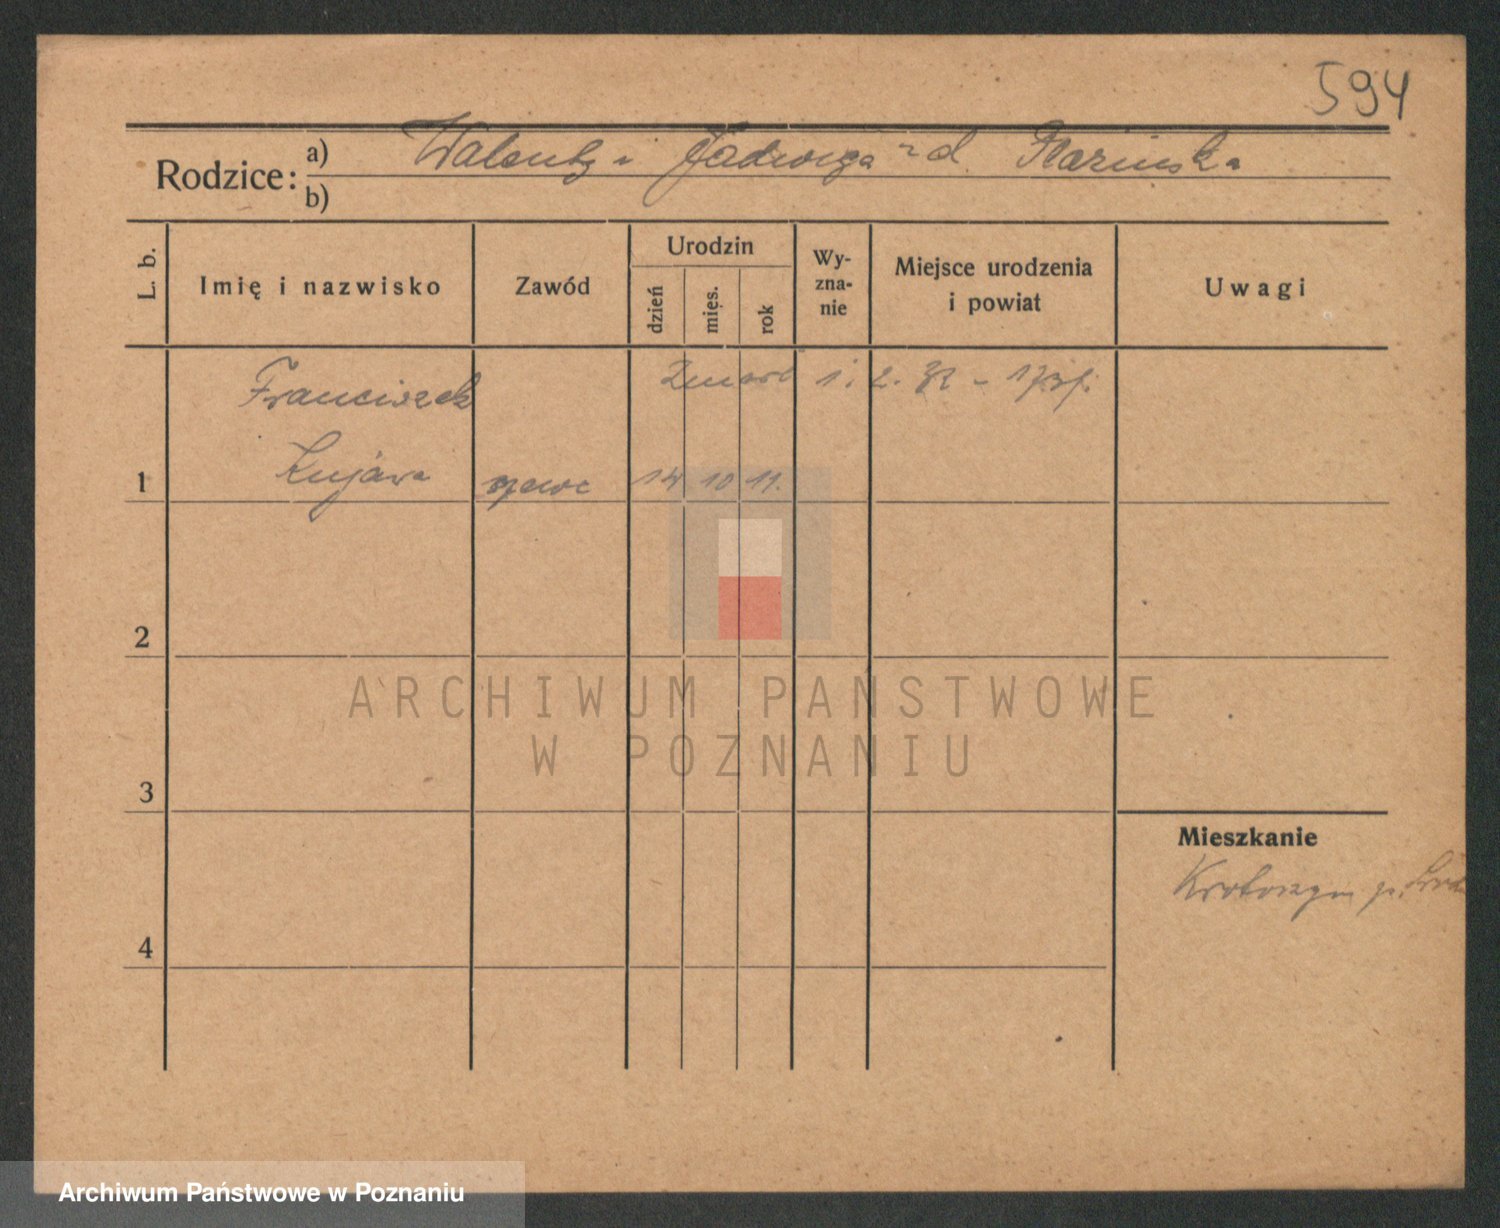 594
Rodzice: a) Walenty i Jadwiga zd
b)
L. b.
Imię i nazwisko
Zawód
Urodzin
dzień
mięs.
rok
Wy-
zna-
nie
Miejsce urodzenia
i powiat
Uwagi
Franciszek
Zmarł 1. 2. 32
Kujawa szewc 14 10 11.
1
2
3
4
Mieszkanie
Krotoszyn p.
ARCHIWUM PAŃSTWOWE
W POZNANIU
Archiwum Państwowe w Poznaniu